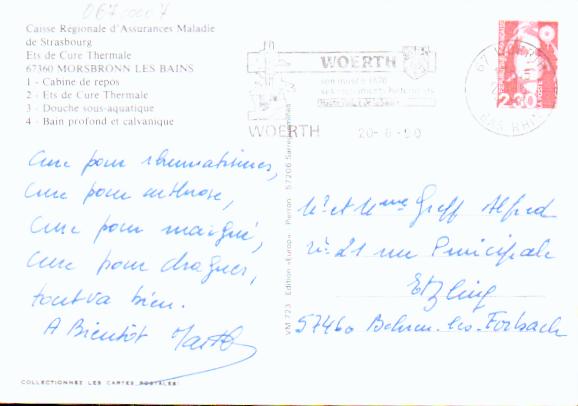 0670007
Caisse Régionale d'Assurances Maladie
de Strasbourg
Ets de Cure Thermale
67360 MORSBRONN LES BAINS
1 - Cabine de repos
2 - Ets de Cure Thermale
3 - Douche sous-aquatique
4 - Bain profond et calvanique
WOERTH
son musée 1870
WOERTH
20-6-90
67 WOERTH
BAS RHIN
2,30
Cure pour rhumatismes,
Cure pour arthrose,
Cure pour maigrir,
Cure pour draguer,
tout va bien.
A Bientôt
VM 723 Edition «Europ» Pierron 57206 Sarreguemines
Mr et Mme Greff Alfred
No 21 rue Principale
Etzling
57460 Behren-les-Forbach
COLLECTIONNEZ LES CARTES POSTALES!